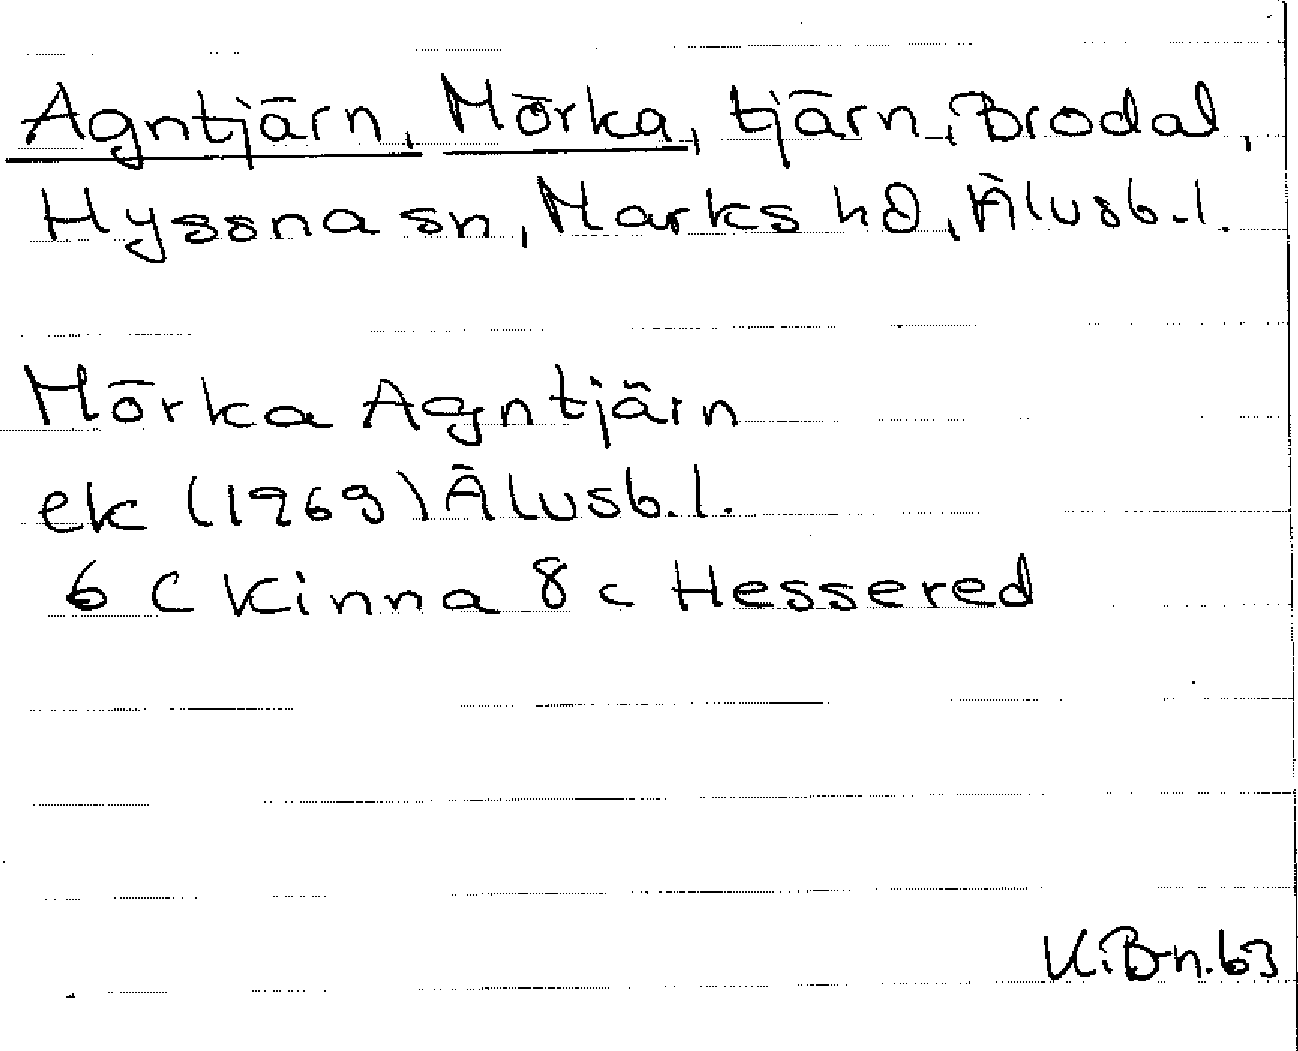 Agntjärn, Mörka, tjärn, Brodal,
Hyssna sn, Marks hd, Älvsb. l.
Mörka Agntjärn
ek (1969) Älvsb. l.
6 C Kinna 8 c Hessered
K.B-n. 63